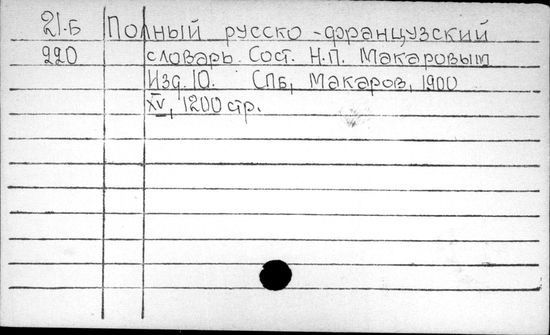 21.Б Полный русско-французский
220 словарь. Сост. Н.П. Макаровым
Изд. 10. СПб, Макаров, 1900
XV, 1200 стр.